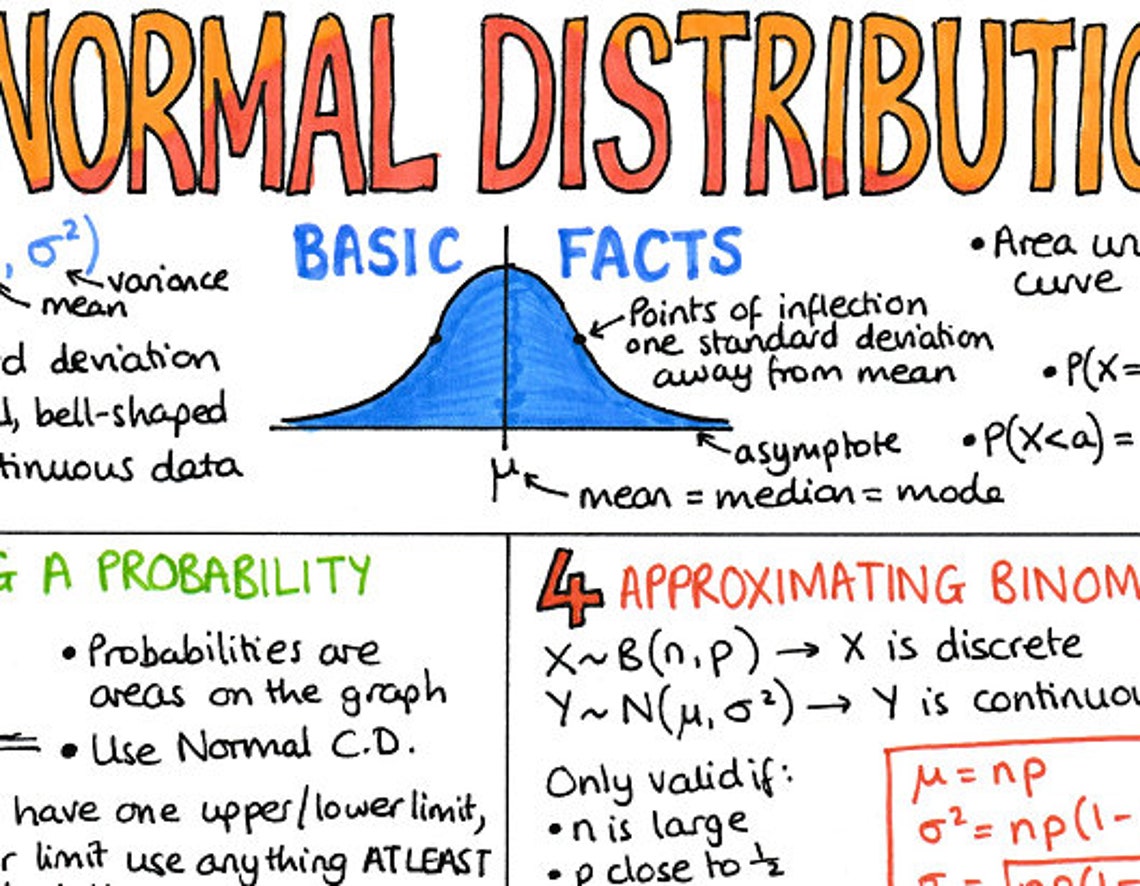 NORMAL DISTRIBUTIO
, σ²)
variance
mean
d deviation
d, bell-shaped
tinuous data
BASIC FACTS
Points of inflection
one standard deviation
away from mean
asymptote
μ
mean = median = mode
• Area un
curve
• P(X=
• P(X<a) =
G A PROBABILITY
• Probabilities are
areas on the graph
• Use Normal C.D.
have one upper/lower limit,
r limit use anything AT LEAST
4 APPROXIMATING BINOM
X~B(n,p) → X is discrete
Y~N(μ,σ²) → Y is continuou
Only valid if:
• n is large
• p close to ½
μ = np
σ² = np(1-